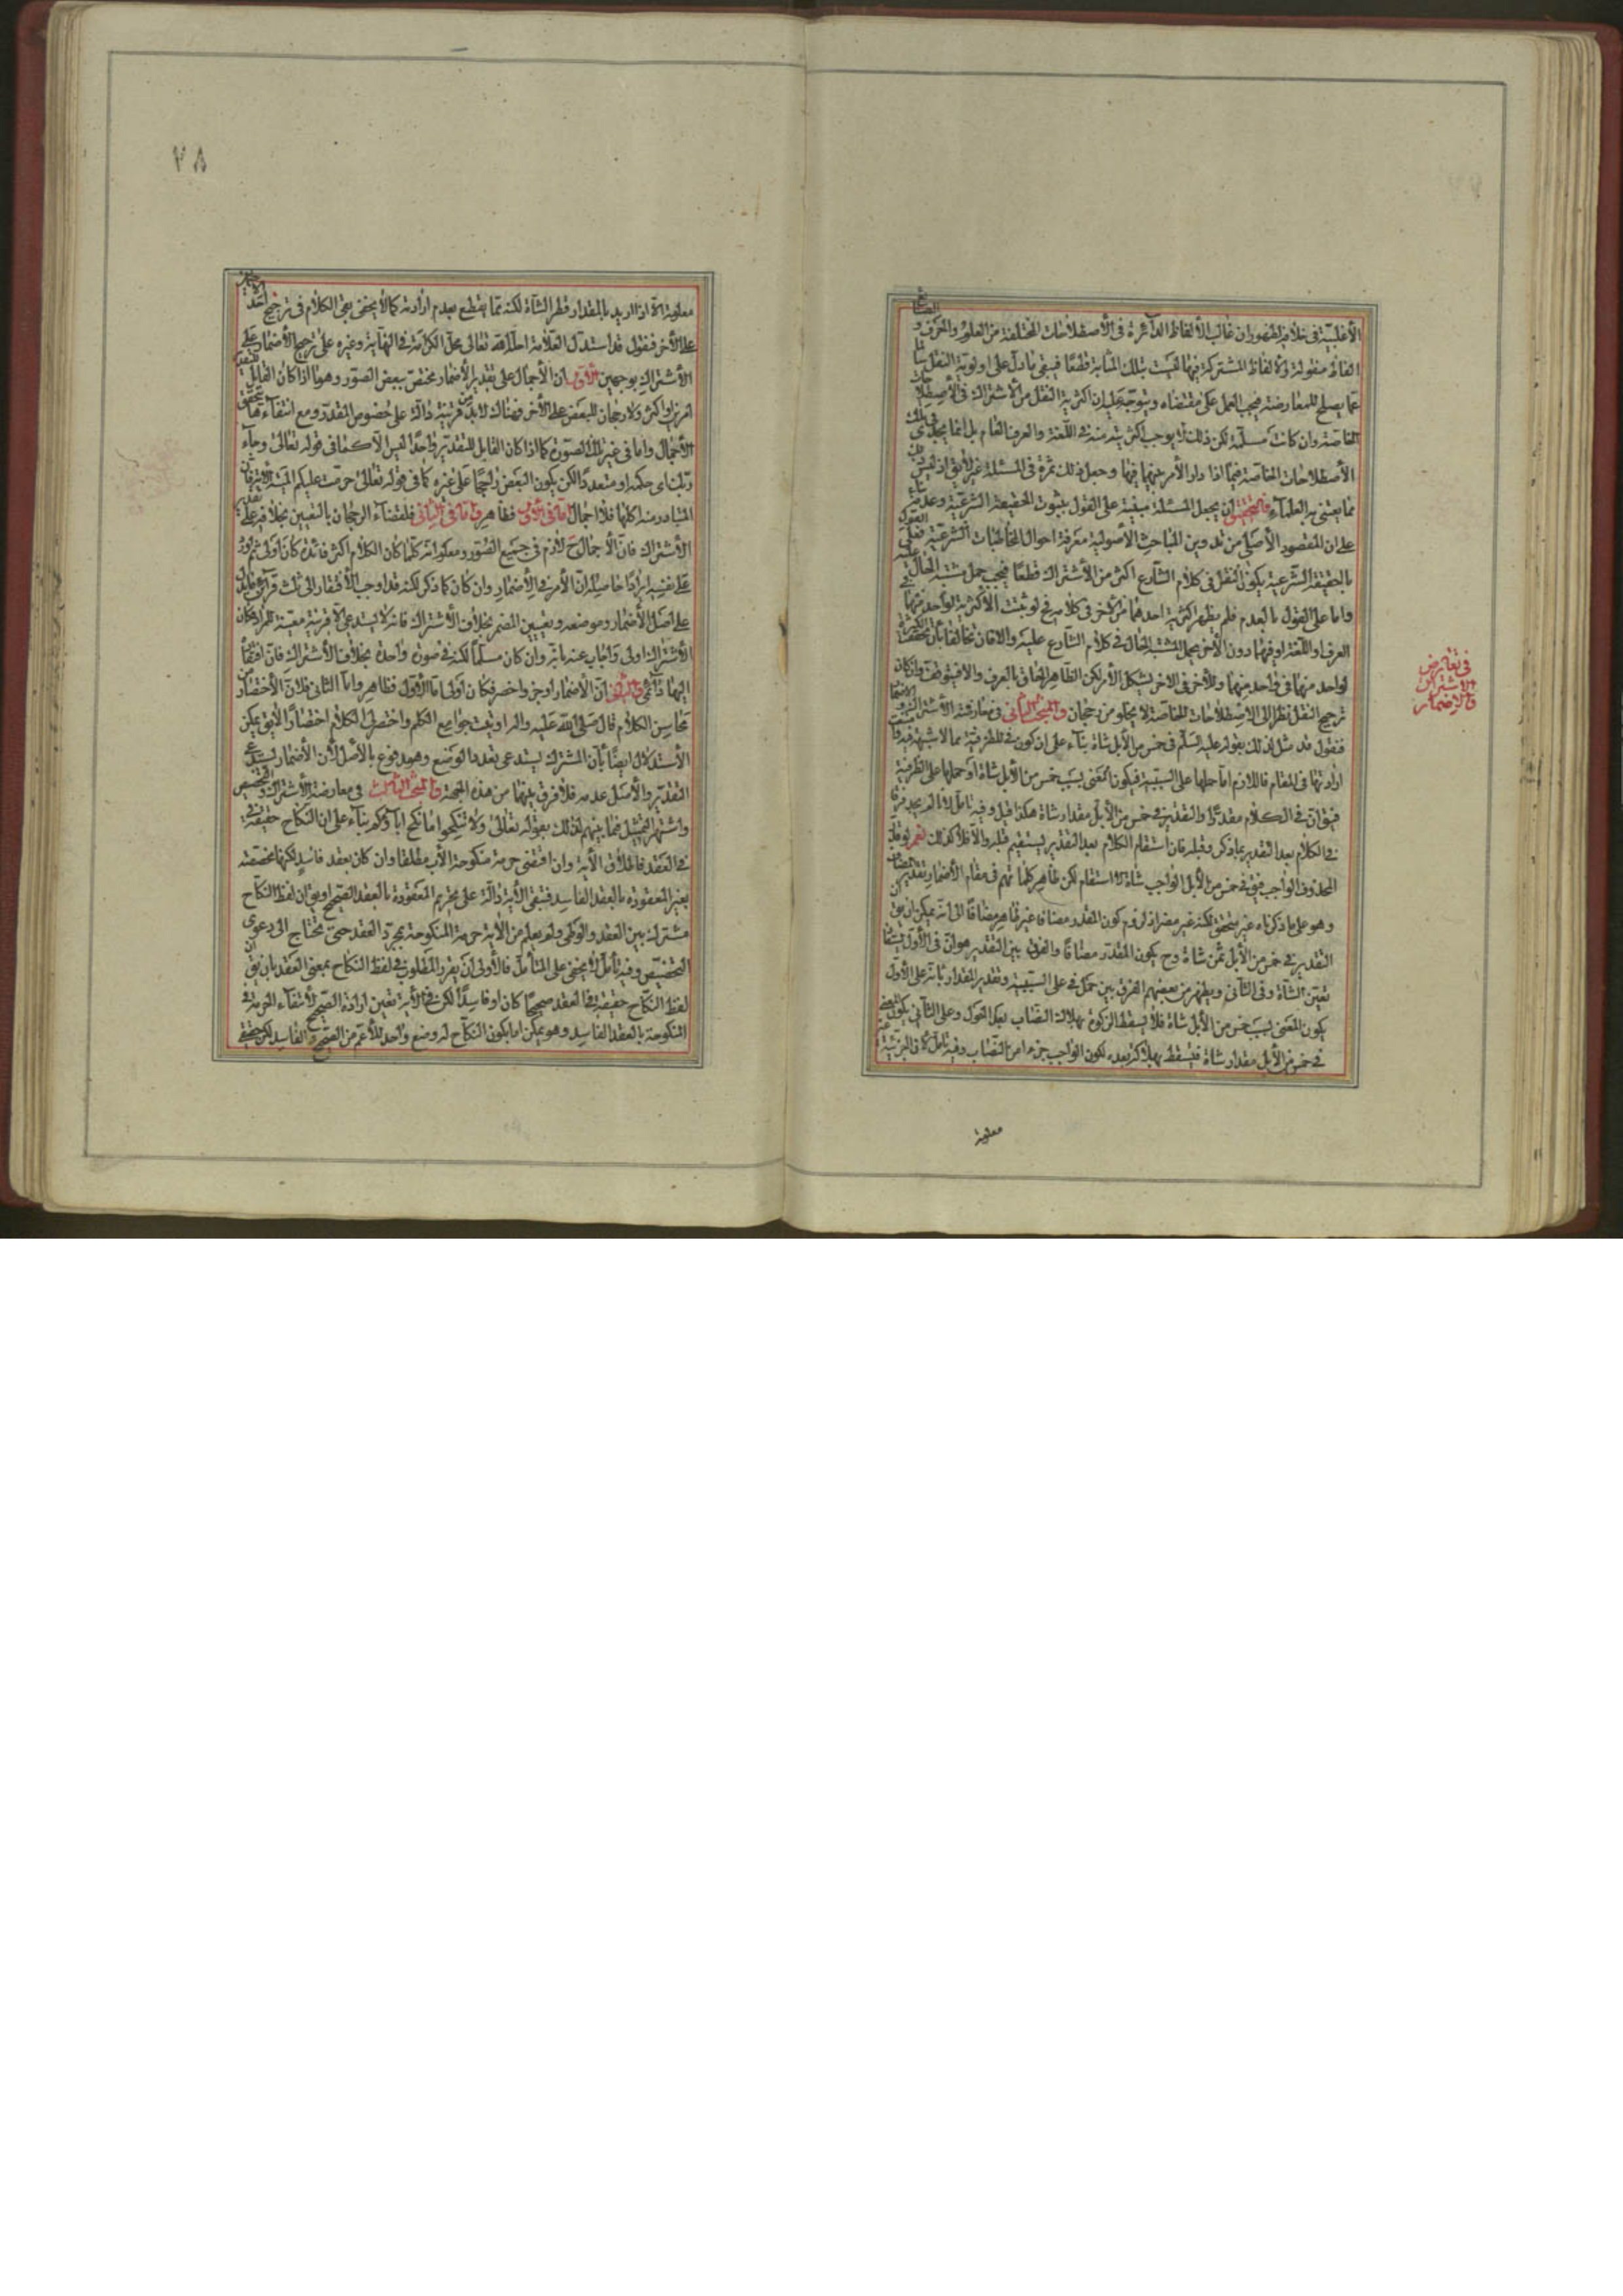 الأغلبية في خلافه لظهور ان غالب الألفاظ الدائرة في الأصطلاحات المختلفة من العلوم والحرف و
الفاظ منقولة والألفاظ المشتركة فيها ليست بتلك المثابة قطعًا فيبقى ما دل على اولوية النقل
عما يصلح للمعارضة فيجب العمل على مقتضاه ويتوجه عليه ان اكثرية النقل من الأشتراك في الأصطلا
الخاصة وان كانت مسلّمة لكن ذلك لا يوجب اكثريته منه في اللغة والعرف العام بل انما يجدى
الأصطلاحات الخاصة فيما اذا دار الأمر بينهما فيها وجعل ذلك ثمرة في المسئلة غير لايق اذ ليس
مما يعتنى به العلماء فالتحقيق ان يجعل المسئلة مبنية على القول بثبوت الحقيقة الشرعية وعدمه
على ان المقصود الأصلى من تدوين المباحث الأصولية معرفة احوال المخاطبات الشرعية فعلى
بالحقيقة الشرعية يكون النقل في كلام الشارع اكثر من الأشتراك قطعًا فيجب حمل مشتبه الحال عليه
واما على القول بالعدم فلم يظهر اكثرية احدهما من الآخر في كلامه فح لو ثبتت الأكثرية لواحد منهما في
العرف او اللغة او فيهما دون الآخر يحمل المشتبه الحال في كلام الشارع عليه والا فان تخالفا بان تحققت
لواحد منهما في واحد منهما وللآخر في الاخر يشكل الأمر لكن الظاهر الحاق بالعرف والا فيتوقف وان كان
ترجيح النقل نظرا الى الاصطلاحات الخاصة لا يخلو من رجحان والمبحث الثاني في معارضة الأشتراك و
فنقول قد مثل لذلك بقوله عليه السلم في خمس من الأبل شاة بناء على ان كون في للظرفية مما لا شبهة فيه
ارادتها في المقام فاللازم اما حملها على السببية فيكون المعنى بسبب خمس من الأبل شاة او حملها على الظرفية
فيق ان في الكلام مقدرًا والتقدير في خمس من الأبل مقدار شاة هكذا قيل وفيه تأمل لانه لم يجد فرقا
في الكلام بعد التقدير بما ذكر وقبله فان استقام الكلام بعد التقدير يستقيم قبله والا فلا كذلك نعم لو قد
المحذوف الواجب فيق في خمس من الأبل الواجب شاة لاستقام لكن ظاهر كلماتهم في مقام الأضمار تقدير
وهو على ما ذكرناه غير متحقق لكنه غير مضر اذ لزوم كون المقدر مضافا غير ظاهر مضافًا الى انه يمكن ان يق
التقدير في خمس من الأبل ثمن شاة وح يكون المقدر مضافًا والفرق بين التقدير هو ان في الأول
تعيين الشاة وفي الثاني ويظهر من بعضهم الفرق بين حمل في على السببية وتقدير المقدار بانه على الأول
يكون المعنى بسبب خمس من الأبل شاة فلا يسقط الزكوة بهلاك النصاب بعد الحول وعلى الثاني يكون المعنى
في خمس من الأبل مقدار شاة فيسقط بهلاكه بعده لكون الواجب جزء من النصاب وفيه تأمل لأن الجزئية غير
معلومة
في تعارض
الاشتراك
والاضمار
٧٨
معلومة الا اذا اريد بالمقدار قطر الشاة لكنه مما يقطع بعدم ارادته كما لا يخفى بقى الكلام في ترجيح احد
على الآخر فنقول قد استدل العلامة احله الله تعالى محل الكرامة في النهاية وغيره على ترجيح الأضمار على
الأشتراك بوجهين الأول ان الأجمال على تقدير الأضمار مختص ببعض الصور وهو ما اذا كان القابل للتقدير
امرين او اكثر ولا رجحان للبعض على الآخر فهناك لا بد من قرينة دالة على خصوص المقدر ومع انتفاءها يتحقق
الأجمال واما في غير تلك الصورة كما اذا كان القابل للتقدير واحدًا ليس الا كما في قوله تعالى وجاء
ربّك اى حكمه او متعددًا لكن يكون البعض راجحًا على غيره كما في قوله تعالى حرمت عليكم الميتة
المتبادر منه اكلها فلا اجمال اما في الأول فظاهر واما في الثاني فلقضاء الرجحان بالتعيين بخلافه على تقدير
الأشتراك فان الأجمال ح لازم في جميع الصور ومعلوم انه كلما كان الكلام اكثر فائدة كان اولى ثم اورد
على نفسه ايرادًا حاصله ان الأمر في الأضمار وان كان كما ذكر لكنه قد اوجب الأفتقار الى ثلث قرائن
على اصل الأضمار وموضعه وتعيين المضمر بخلاف الأشتراك فانه لا يستدعى الا قرينة معيّنة للمراد فكان
الأشتراك اولى واجاب عنه بانه وان كان مسلّمًا لكنه في صورة واحدة بخلاف الأشتراك فان افتقاره
اليها دائمى والثاني ان الأضمار اوجز واخصر فكان اولى اما الأول فظاهر واما الثاني فلان الأختصار من
محاسن الكلام قال صلى الله عليه واله اوتيت جوامع الكلم واختصر لى الكلام اختصارًا لا يق يمكن
الأستدلال ايضًا بان المشترك يستدعى تعدد الوضع وهو مدفوع بالاصل لأن الأضمار يستدعى
التقدير والأصل عدمه فلا فرق بينهما من هذه الجهة والمبحث الثالث في معارضة الأشتراك والتخصيص
واشتهر التمثيل فيما بينهم لذلك بقوله تعالى ولا تنكحوا ما نكح اباؤكم بناء على ان النكاح حقيقة
في العقد فاطلاق الأية وان اقتضى حرمة منكوحة الأب مطلقا وان كان بعقد فاسد لكنها مخصصة
بغير المعقودة بالعقد الفاسد فتبقى الأية دالة على تحريم المعقودة بالعقد الصحيح او يق ان لفظ النكاح
مشترك بين العقد والوطى ولم يعلم من الأية حرمة المنكوحة بمجرد العقد حتى تحتاج الى دعوى
التخصيص وفيه تأمل لا يخفى على المتأمل فالأولى ان يقرر المطلوب في لفظ النكاح بمعنى العقد بان يق ان
لفظ النكاح حقيقة في العقد صحيحًا كان او فاسدًا لكن في الأية تعين ارادة الصحيح لأنتفاء الحرمة في
المنكوحة بالعقد الفاسد وهو يمكن اما بكون النكاح له وضع واحد للأعم من الصحيح والفاسد لكن